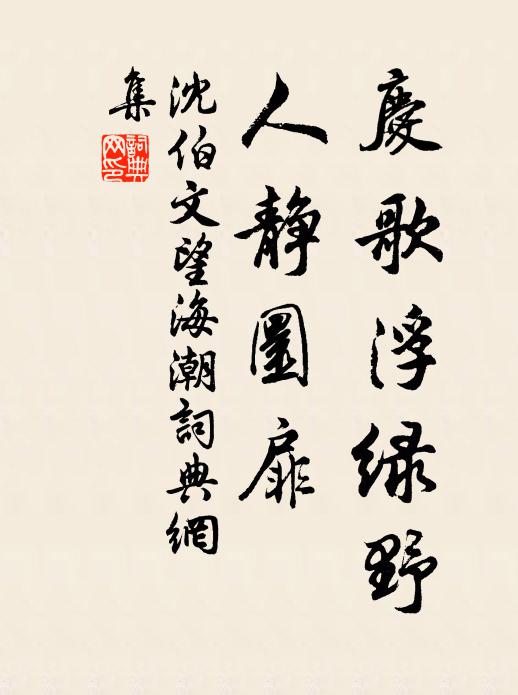 慶歌浮綠野
人靜圜扉
沈伯文望海潮詞典網
集
詞典網印